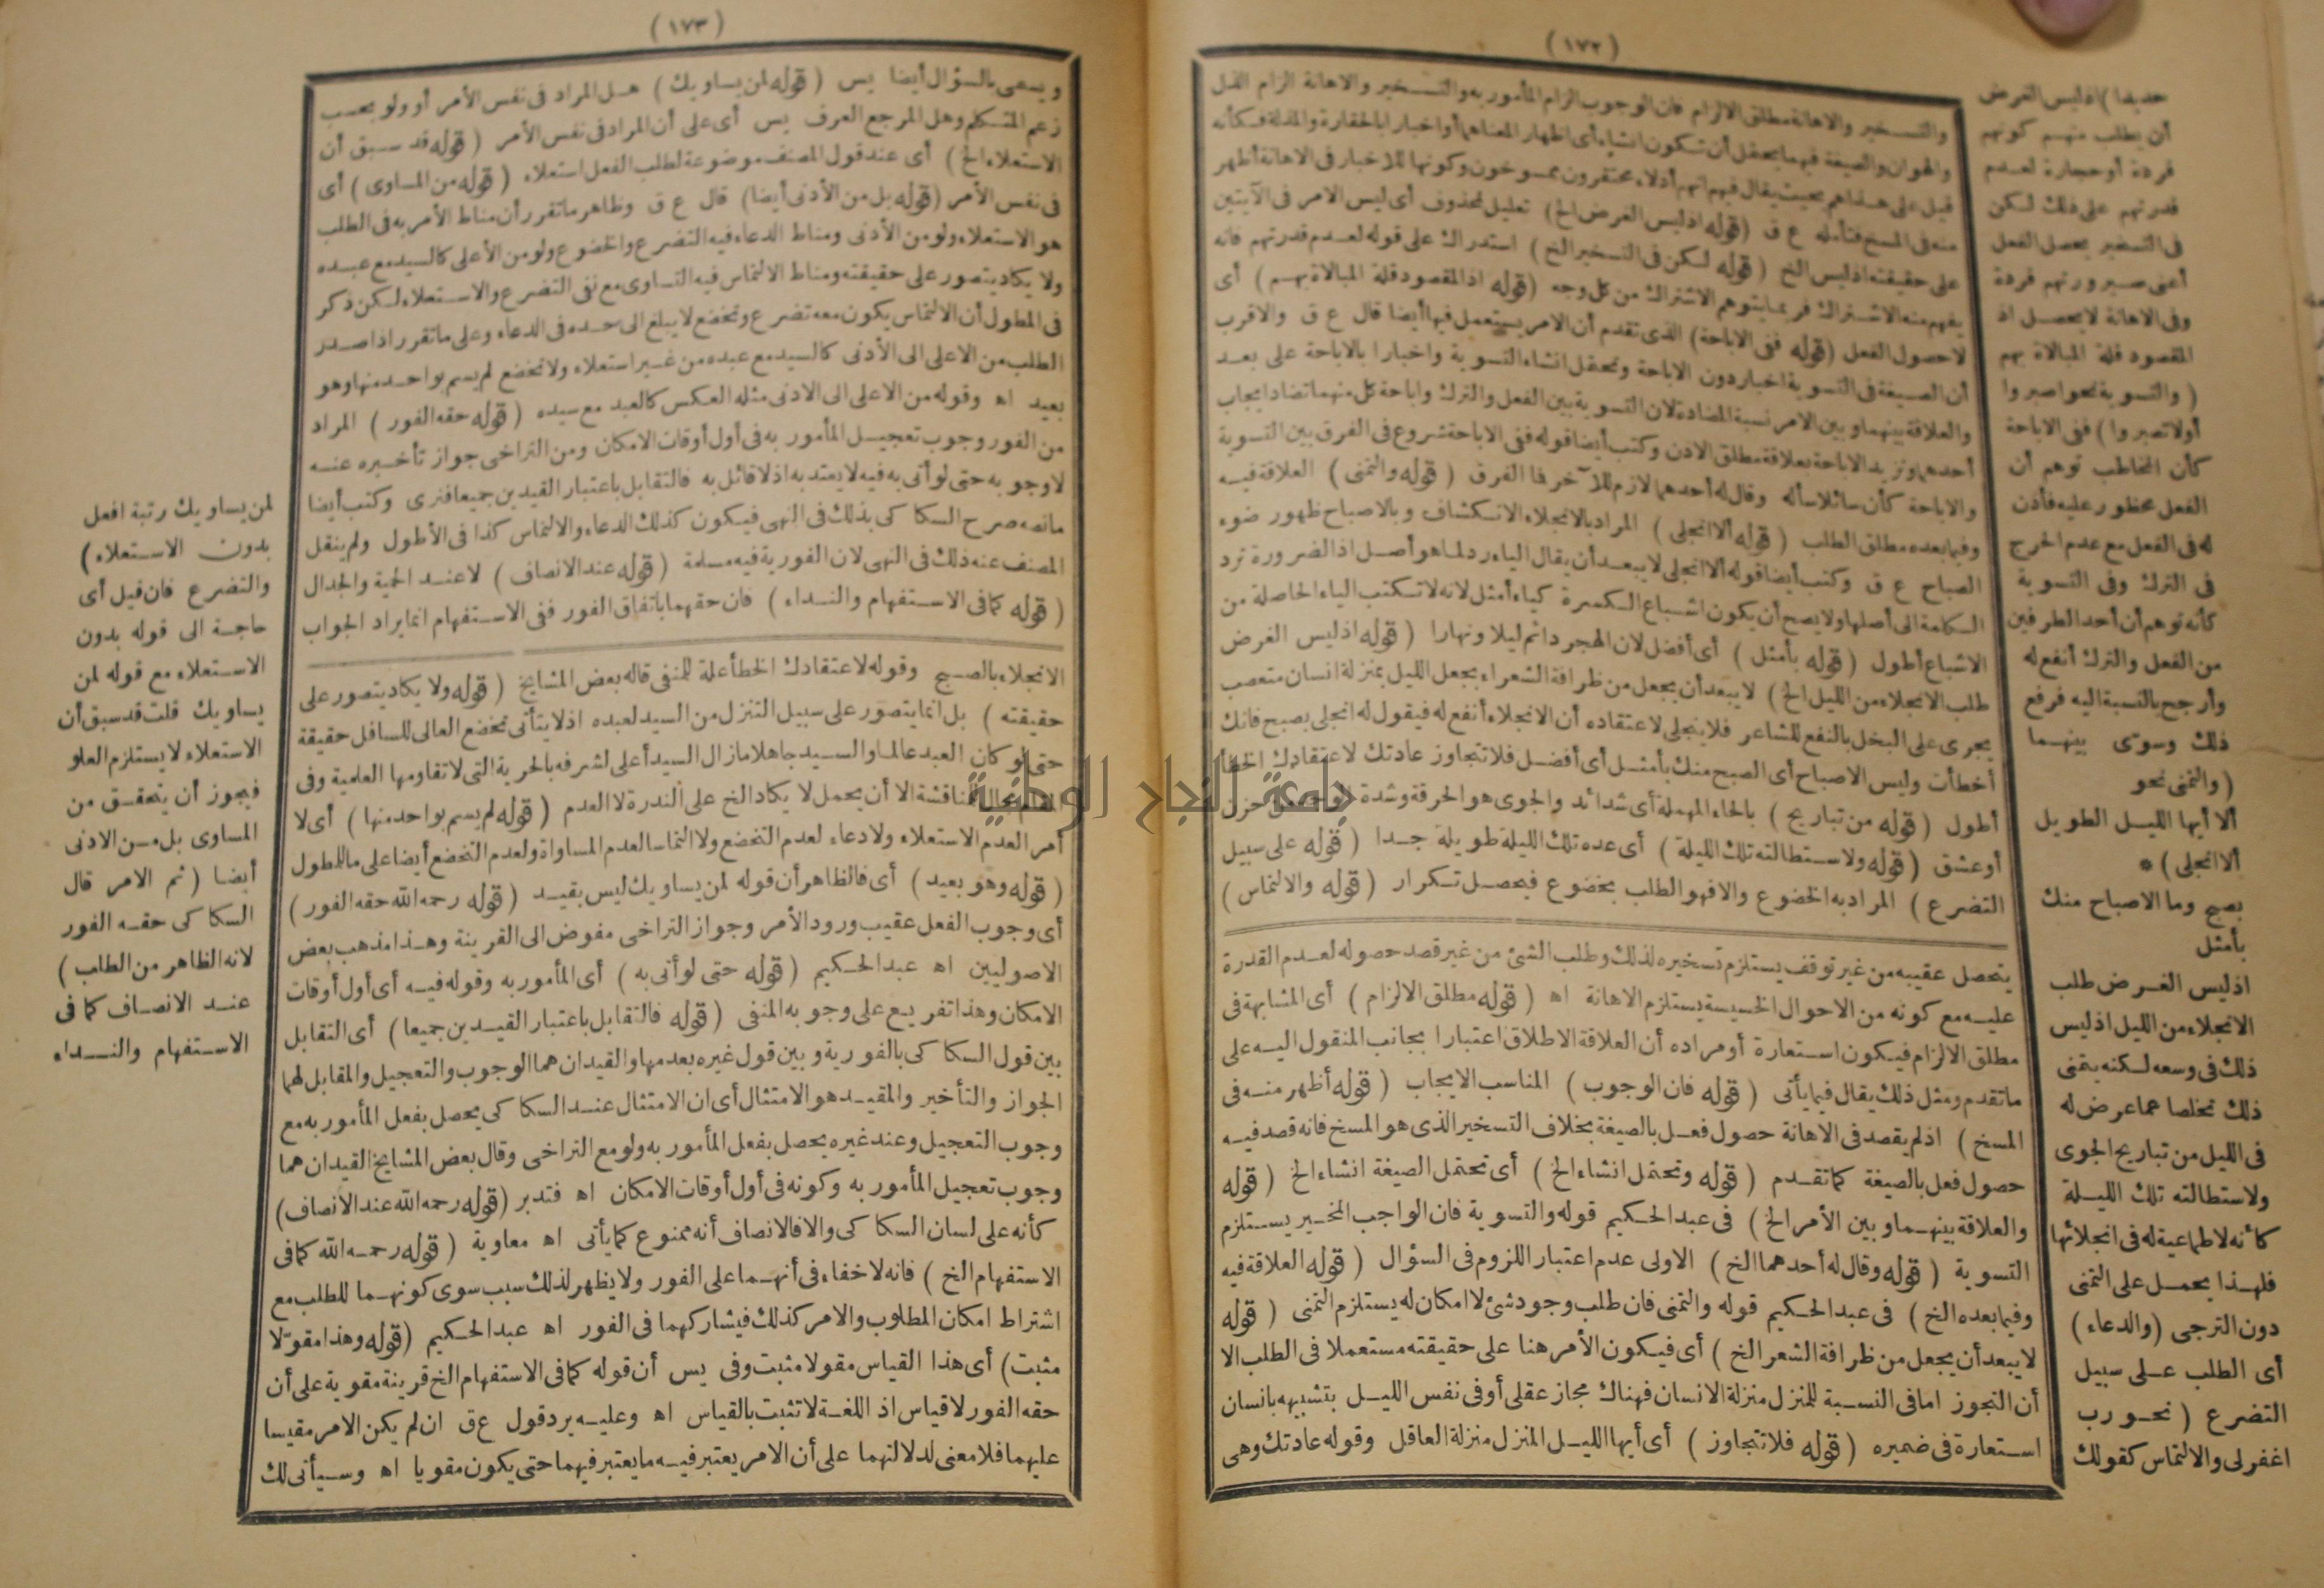 (١٧٢)
حديدا) اذ ليس الغرض
أن يطلب منهم كونهم
قردة أو حجارة لعدم
قدرتهم على ذلك لكن
فى التسخير يحصل الفعل
أعنى صيرورتهم قردة
وفى الاهانة لا يحصل اذ
المقصود قلة المبالاة بهم
(والتسوية نحو اصبروا
أولا تصبروا) ففى الاباحة
كأن المخاطب توهم أن
الفعل محظور عليه فأذن
له فى الفعل مع عدم الحرج
فى الترك وفى التسوية
كأنه توهم أن أحد الطرفين
من الفعل والترك أنفع له
وأرجح بالنسبة اليه فرفع
ذلك وسوّى بينهما
(والتمنى نحو
ألا أيها الليل الطويل
ألا انجلى) *
بصبح وما الاصباح منك
بأمثل
اذ ليس الغرض طلب
الانجلاء من الليل اذ ليس
ذلك فى وسعه لكنه يتمنى
ذلك تخلصا عما عرض له
فى الليل من تباريح الجوى
ولاستطالته تلك الليلة
كأنه لا طماعية له فى انجلائها
فلهذا يحمل على التمنى
دون الترجى (والدعاء)
أى الطلب على سبيل
التضرع (نحو رب
اغفر لى والالتماس كقولك
والتسخير والاهانة مطلق الالزام فان الوجوب الزام المأمور به والتسخير والاهانة الزام الذل
والهوان والصيغة فيهما يحتمل أن تكون انشاء أى اظهار المعناهما أو اخبارا بالحقارة والمذلة فكأنه
قيل على هذا هم بحيث يقال فيهم انهم أذلاء محتقرون ممسوخون وكونها للاخبار فى الاهانة أظهر
منه فى المسخ فتأمله ع ق (قوله اذ ليس الغرض الخ) تعليل لمحذوف أى ليس الامر فى الآيتين
على حقيقته اذ ليس الخ (قوله لكن فى التسخير الخ) استدراك على قوله لعدم قدرتهم فانه
يفهم منه الاشتراك فربما يتوهم الاشتراك من كل وجه (قوله اذ المقصود قلة المبالاة بهم) أى
لا حصول الفعل (قوله ففى الاباحة) الذى تقدم أن الامر يستعمل فيها أيضا قال ع ق والاقرب
أن الصيغة فى التسوية اخبار دون الاباحة ويحتمل انشاء التسوية واخبارا بالاباحة على بعد
والعلاقة بينها وبين الامر نسبة المضادة لان التسوية بين الفعل والترك واباحة كل منهما تضاد ايجاب
أحدهما وتزيد الاباحة بعلاقة مطلق الاذن وكتب أيضا قوله ففى الاباحة شروع فى الفرق بين التسوية
والاباحة كأن سائلا سأله وقال له أحدهما لازم للآخر فما الفرق (قوله والتمنى) العلاقة فيه
وفيما بعده مطلق الطلب (قوله ألا انجلى) المراد بالانجلاء الانكشاف وبالاصباح ظهور ضوء
الصباح ع ق وكتب أيضا قوله ألا انجلى لا يبعد أن يقال الياء رد لما هو أصل اذ الضرورة ترد
الكلمة الى أصلها ولا يصح أن يكون اشباع الكسرة كياء أمثل لانه لا تكتب الياء الحاصلة من
الاشباع أطول (قوله بأمثل) أى أفضل لان الهجر دائم ليلا ونهارا (قوله اذ ليس الغرض
طلب الانجلاء من الليل الخ) لا يبعد أن يجعل من ظرافة الشعراء بجعل الليل بمنزلة انسان متعصب
يجرى على البخل بالنفع للشاعر فلا ينجلى لاعتقاده أن الانجلاء أنفع له فيقول له انجلى بصبح فانك
أخطأت وليس الاصباح أى الصبح منك بأمثل أى أفضل فلا تتجاوز عادتك لاعتقادك الخطأ
أطول (قوله من تباريح) بالحاء المهملة أى شدائد والجوى هو الحرقة وشدة الوجد من حزن
أو عشق (قوله ولاستطالته تلك الليلة) أى عده تلك الليلة طويلة جدا (قوله على سبيل
التضرع) المراد به الخضوع والا فهو الطلب بخضوع فيحصل تكرار (قوله والالتماس)
يتحصل عقيبه من غير توقف يستلزم تسخيره لذلك وطلب الشئ من غير قصد حصوله لعدم القدرة
عليه مع كونه من الاحوال الخسيسة يستلزم الاهانة اه (قوله مطلق الالزام) أى المشابهة فى
مطلق الالزام فيكون استعارة أو مراده أن العلاقة الاطلاق اعتبارا بجانب المنقول اليه على
ما تقدم ومثل ذلك يقال فيما يأتى (قوله فان الوجوب) المناسب الايجاب (قوله أظهر منه فى
المسخ) اذ لم يقصد فى الاهانة حصول فعل بالصيغة بخلاف التسخير الذى هو المسخ فانه قصد فيه
حصول فعل بالصيغة كما تقدم (قوله وتحتمل انشاء الخ) أى تحتمل الصيغة انشاء الخ (قوله
والعلاقة بينهما وبين الأمر الخ) فى عبد الحكيم قوله والتسوية فان الواجب المخير يستلزم
التسوية (قوله وقال له أحدهما الخ) الاولى عدم اعتبار اللزوم فى السؤال (قوله العلاقة فيه
وفيما بعده الخ) فى عبد الحكيم قوله والتمنى فان طلب وجود شئ لا امكان له يستلزم التمنى (قوله
لا يبعد أن يجعل من ظرافة الشعر الخ) أى فيكون الأمر هنا على حقيقته مستعملا فى الطلب الا
أن التجوز اما فى النسبة للمنزل منزلة الانسان فهناك مجاز عقلى أو فى نفس الليل بتشبيهه بانسان
استعارة فى ضميره (قوله فلا تتجاوز) أى أيها الليل المنزل منزلة العاقل وقوله عادتك وهى
(١٧٣)
ويسمى بالسؤال أيضا يس (قوله لمن يساويك) هل المراد فى نفس الأمر أو ولو بحسب
زعم المتكلم وهل المرجع العرف يس أى على أن المراد فى نفس الأمر (قوله قد سبق أن
الاستعلاء الخ) أى عند قول المصنف موضوعة لطلب الفعل استعلاء (قوله من المساوى) أى
فى نفس الأمر (قوله بل من الأدنى أيضا) قال ع ق وظاهر ما تقرر أن مناط الأمر به فى الطلب
هو الاستعلاء ولو من الأدنى ومناط الدعاء فيه التضرع والخضوع ولو من الأعلى كالسيد مع عبده
ولا يكاد يتصور على حقيقته ومناط الالتماس فيه التساوى مع نفى التضرع والاستعلاء لكن ذكر
فى المطول أن الالتماس يكون معه تضرع وتخضع لا يبلغ الى حده فى الدعاء وعلى ما تقرر اذا صدر
الطلب من الاعلى الى الأدنى كالسيد مع عبده من غير استعلاء ولا تخضع لم يسم بواحد منها وهو
بعيد اه وقوله من الاعلى الى الادنى مثله العكس كالعبد مع سيده (قوله حقه الفور) المراد
من الفور وجوب تعجيل المأمور به فى أول أوقات الامكان ومن التراخى جواز تأخيره عنه
لا وجوبه حتى لو أتى به فيه لا يعتد به اذ لا قائل به فالتقابل باعتبار القيدين جميعا فنرى وكتب أيضا
ما نصه صرح السكاكى بذلك فى النهى فيكون كذلك الدعاء والالتماس كذا فى الأطول ولم ينقل
المصنف عنه ذلك فى النهى لان الفورية فيه مسلمة (قوله عند الانصاف) لا عند الحمية والجدال
(قوله كما فى الاستفهام والنداء) فان حقهما باتفاق الفور ففى الاستفهام انما يراد الجواب
الانجلاء بالصبح وقوله لاعتقادك الخطأ علة للمنفى قاله بعض المشايخ (قوله ولا يكاد يتصور على
حقيقته) بل انما يتصور على سبيل التنزل من السيد لعبده اذ لا يتأتى تخضع العالى للسافل حقيقة
حتى لو كان العبد عالما والسيد جاهلا ما زال السيد أعلى لشرفه بالحرية التى لا تقاومها العلمية وفى
المناقشة الا أن يحمل لا يكاد الخ على الندرة لا العدم (قوله لم يسم بواحد منها) أى لا
أمر العدم الاستعلاء ولا دعاء لعدم التخضع ولا التماسا لعدم المساواة ولعدم التخضع أيضا على ما للمطول
(قوله وهو بعيد) أى فالظاهر أن قوله لمن يساويك ليس بقيد (قوله رحمه الله حقه الفور)
أى وجوب الفعل عقيب ورود الأمر وجواز التراخى مفوض الى القرينة وهذا مذهب بعض
الاصوليين اه عبد الحكيم (قوله حتى لو أتى به) أى المأمور به وقوله فيه أى أول أوقات
الامكان وهذا تفريع على وجوبه المنفى (قوله فالتقابل باعتبار القيدين جميعا) أى التقابل
بين قول السكاكى بالفورية وبين قول غيره بعدمها والقيدان هما الوجوب والتعجيل والمقابل لهما
الجواز والتأخير والمقيد هو الامتثال أى ان الامتثال عند السكاكى يحصل بفعل المأمور به مع
وجوب التعجيل وعند غيره يحصل بفعل المأمور به ولو مع التراخى وقال بعض المشايخ القيدان هما
وجوب تعجيل المأمور به وكونه فى أول أوقات الامكان اه فتدبر (قوله رحمه الله عند الانصاف)
كأنه على لسان السكاكى والا فالانصاف أنه ممنوع كما يأتى اه معاوية (قوله رحمه الله كما فى
الاستفهام الخ) فانه لا خفاء فى أنهما على الفور ولا يظهر لذلك سبب سوى كونهما للطلب مع
اشتراط امكان المطلوب والامر كذلك فيشاركهما فى الفور اه عبد الحكيم (قوله وهذا مقوّ لا
مثبت) أى هذا القياس مقو لا مثبت وفى يس أن قوله كما فى الاستفهام الخ قرينة مقوية على أن
حقه الفور لا قياس اذ اللغة لا تثبت بالقياس اه وعليه يرد قول ع ق ان لم يكن الامر مقيسا
عليهما فلا معنى لدلالتهما على أن الامر يعتبر فيه ما يعتبر فيهما حتى يكون مقويا اه وسيأتى لك
لمن يساويك رتبة افعل
بدون الاستعلاء)
والتضرع فان قيل أى
حاجة الى قوله بدون
الاستعلاء مع قوله لمن
يساويك قلت قد سبق أن
الاستعلاء لا يستلزم العلو
فيجوز أن يتحقق من
المساوى بل من الادنى
أيضا (ثم الامر قال
السكاكى حقه الفور
لانه الظاهر من الطلب)
عند الانصاف كما فى
الاستفهام والنداء
جامعة النجاح الوطنية